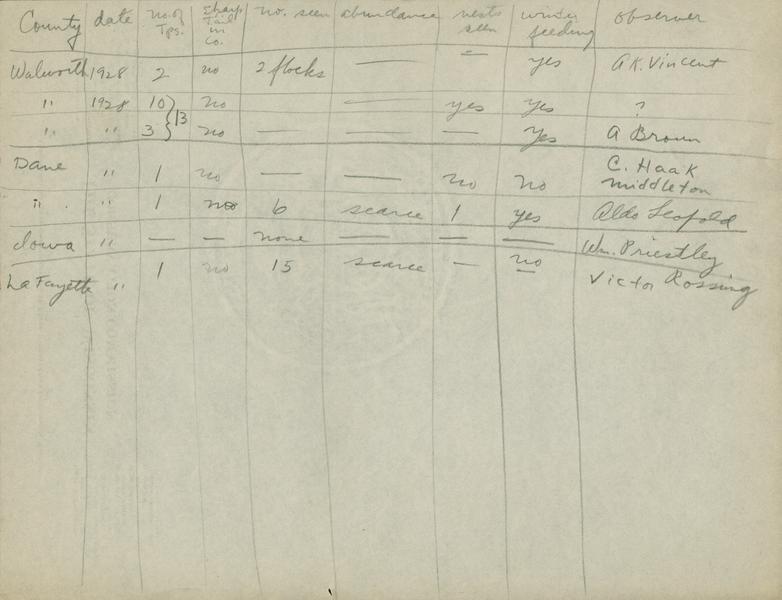 County date no. of Tps. Sharp Tail in Co. no. seen abundance nests seen winter feeding observer
Walworth 1928 2 no 2 flocks — — yes A K. Vincent
" 1928 10 } 13 no — yes yes ?
" " 3 no — — — yes A Broun
Dane " 1 no — — no no C. Haak Middleton
" " 1 no 6 scarce 1 yes Aldo Leopold
Iowa " — — none — — — Wm. Priestley
LaFayette " 1 no 15 scarce — no Victor Rossing